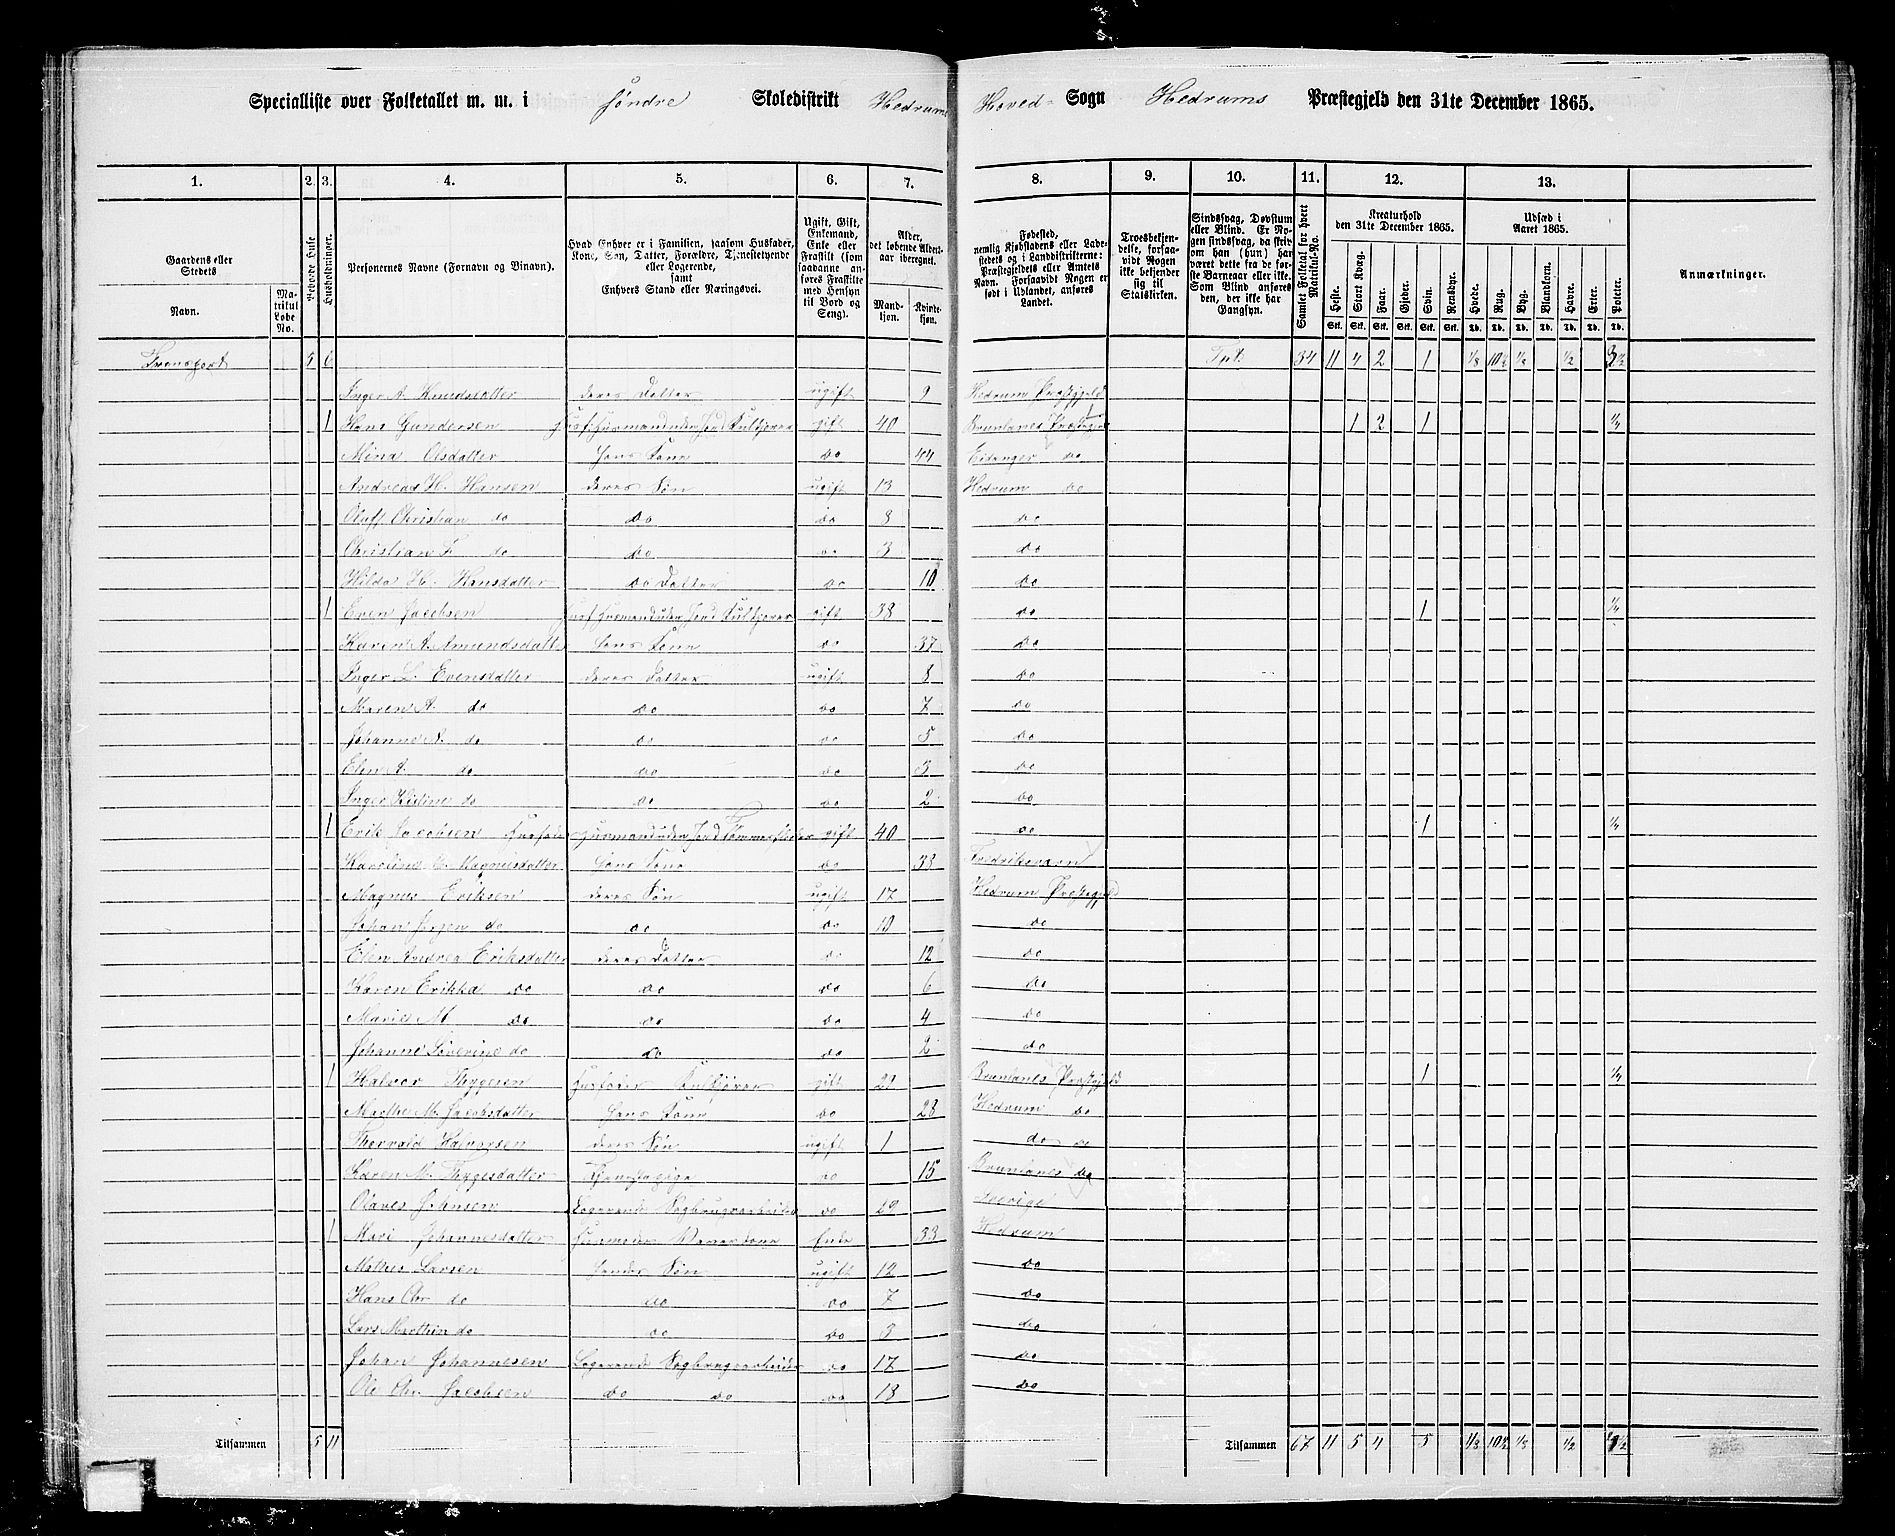 Specialliste over Folketallet m. m. i Søndre Skoledistrikt Hedrums Hoved- Sogn Hedrums Præstegjeld den 31te December 1865.
1. 2. 3. 4. 5. 6. 7. 8. 9. 10. 11. 12. 13.
Gaardens eller Stedets Navn. Matrikul Løbe No.
Beboede Huse
Husholdninger.
Personernes Navne (Fornavn og Tilnavn).
Hvad Enhver er i Familien, saasom Husfader, Kone, Søn, Datter, Forældre, Tjenestetyende eller Logerende, samt Enhvers Stand eller Næringsvei.
Ugift, Gift, Enkemand, Enke eller Fraskilt (som saadanne anføres Fraskilte med Hensyn til Bord og Seng).
Alder, det løbende Alders-aar iberegnet. Mandkjøn. Kvindekjøn.
Fødested, nemlig Kjøbstadens eller Ladestedets og i Landdistrikterne: Præstegjeldets eller Amtets Navn. Forsaavidt Nogen er født i Udlandet, anføres Landet.
Troesbekjendelse, forsaavidt Nogen ikke bekjender sig til Statskirken.
Sindssvag, Døvstum eller Blind. Er Nogen sindssvag, da skriv om han (hun) har været dette fra de første Barneaar eller ikke. Som Blind anføres den, der ikke har Gangsyn.
Samlet Folketal for hvert Matrikul-No.
Kreaturhold den 31te December 1865. Heste. Stort Kvæg. Faar. Gjeder. Svin. Rensdyr.
Udsæd i Aaret 1865. Hvede. Rug. Byg. Blandkorn. Havre. Erter. Poteter.
Anmærkninger.
Stk. Stk. Stk. Stk. Stk. Stk. Td. Td. Td. Td. Td. Td. Td.
Transport 5 6 Tpt. 34 11 4 2 1 1/8 10½ 1/8 1/2 3½
Inger A. Knudsdatter deres Datter ugift 9 Hedrum Præstgjeld
1 Hans Gundersen Husf. Husmand uden Jord Kulkjører gift 40 Brunlanes Præstegjeld 1 2 1 1/4
Mina Olsdatter Hans Kone do 44 Eidanger do
Andreas H. Hansen deres Søn ugift 13 Hedrum do
Oluff Christian do do do 8 do
Christian F. do do do 3 do
Hilda H. Hansdatter do Datter do 10 do
1 Even Jacobsen Husf. Husmand uden Jord Kulkjører gift 38 do 1 1/4
Karen A. Amundsdatter Hans Kone do 37 do
Inger L. Evensdatter deres Datter ugift 8 do
Maren A. do do do 7 do
Johanne A. do do do 5 do
Elen A. do do do 3 do
Inger Kistine do do do 2 do
1 Erik Jacobsen Husfader Husmand uden Jord Tømmerfløder gift 40 do 1 1/4
Karoline E. Magnusdatter Hans Kone do 33 Fredriksværn
Magnus Eriksen deres Søn ugift 17 Hedrum Præstegjeld
Johan Jørgen do do do 10 do
Elen Andrea Eriksdatter deres Datter do 12 do
Karen Erikka do do do 6 do
Marie M. do do do 4 do
Johanne Severine do do do 2 do
1 Halvor Thygesen Husfader Kulkjører gift 29 Brunlanes Præstgjeld 1 1/4
Marthe M. Jacobsdatter Hans Kone do 28 Hedrum do
Thorvald Halvorsen deres Søn ugift 1 do do
Karen M. Thygesdatter Tjenestepige do 15 Brunlanes do
Olaves Johnsen Logerende Sagbrugsarbeider do 29 Sverige
1 Mari Johannesdatter Husmoder Vaskerkone Enke 33 Hedrum
Mathis Larsen Hendes Søn ugift 12 do
Hans Chr. do do do 7 do
Lars Marthin do do do 3 do
Johan Johannesen Logerende Sagbrugsarbeider do 17 do
Ole Chr. Jacobsen do do do 18 do
Tilsammen 5 11 Tilsammen 67 11 5 4 5 1/8 10½ 1/8 1/2